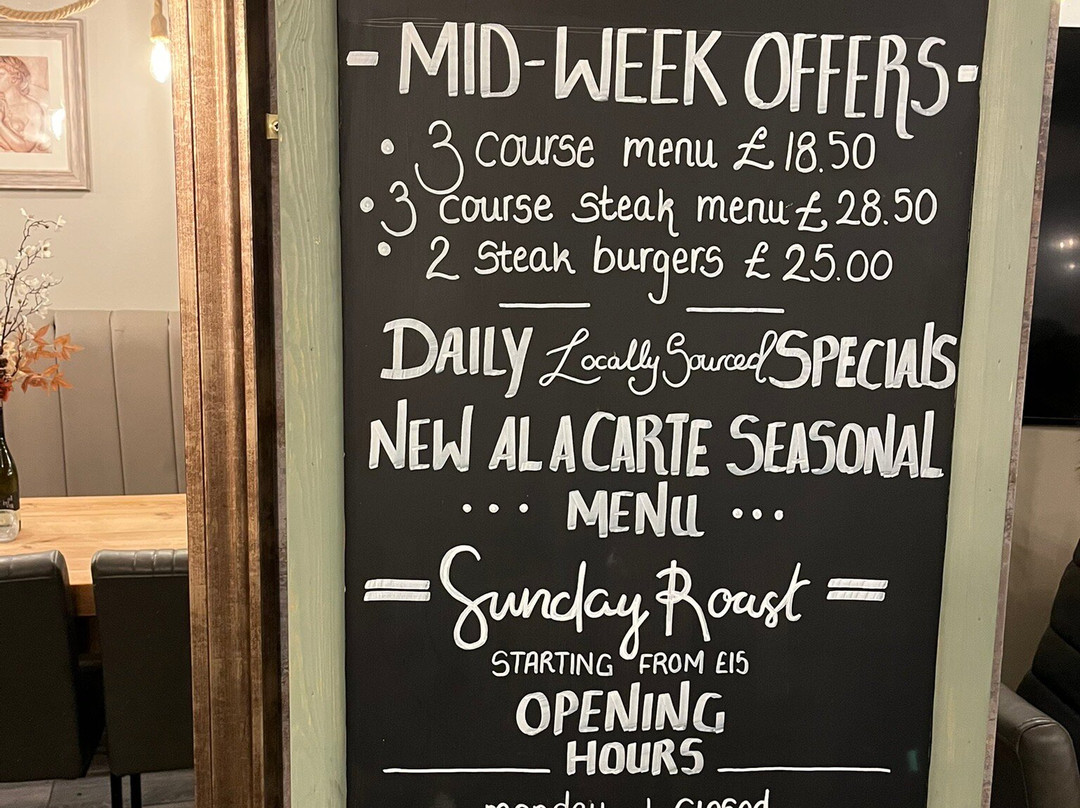 - MID-WEEK OFFERS -
• 3 course menu £18.50
• 3 course steak menu £28.50
• 2 steak burgers £25.00
DAILY Locally Sourced SPECIALS
NEW AL A CARTE SEASONAL
... MENU ...
= Sunday Roast =
STARTING FROM £15
OPENING
HOURS
monday closed